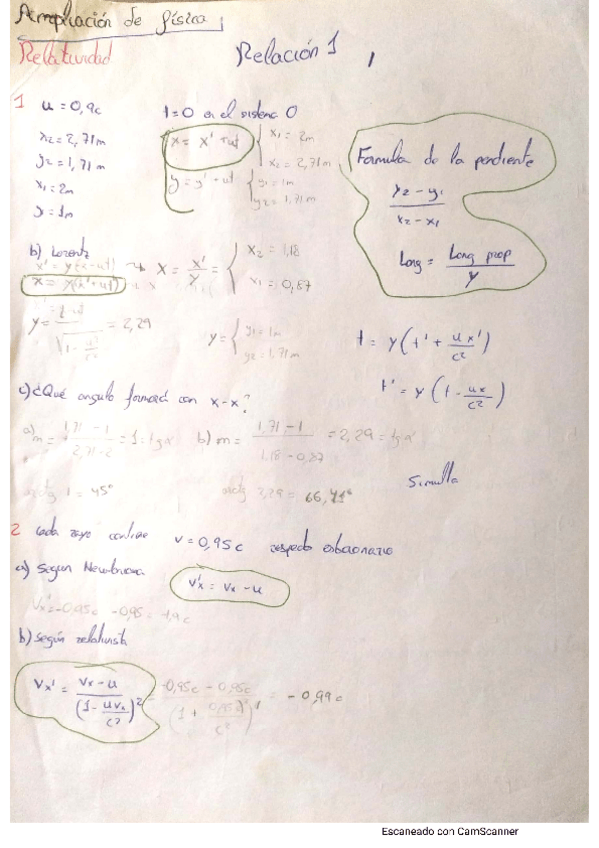 Ampliación de física
Relatividad
Relación 1
1 u = 0,9c
t=0 en el sistema O
x2 = 2,71m
y2 = 1,71 m
x1 = 2m
y1 = 1m
x = x' + ut { x1 = 2m
x2 = 2,71m
y = y' + ut { y1 = 1m
y2 = 1,71m
Formula de la pendiente
y2 - y1
x2 - x1
Long = Long prop
γ
b) Lorentz
x' = γ(x-ut) → x = x'/γ = { x2 = 1,18
x1 = 0,87
x = γ(x'+ut)
= 2,29
y = { y1 = 1m
y2 = 1,71m
t = γ(t' + ux'/c²)
t' = γ(t - ux/c²)
c) ¿Qué angulo formará con x-x'?
a) m = 1,71 - 1 / 2,71 - 2 = 1 = tg α
b) m = 1,71 - 1 / 1,18 - 0,87 = 2,29 = tg α
arctg 1 = 45°
arctg 2,29 = 66,41°
2 Cada rayo
v = 0,95c respecto estacionario
a) Segun Newtoniana
Vx' = Vx - u
Vx' = -0,95c - 0,95 = -1,9c
b) según relativista
Vx' = Vx - u / (1 - uVx/c²)² = -0,95c - 0,95c
= - 0,99c
Escaneado con CamScanner